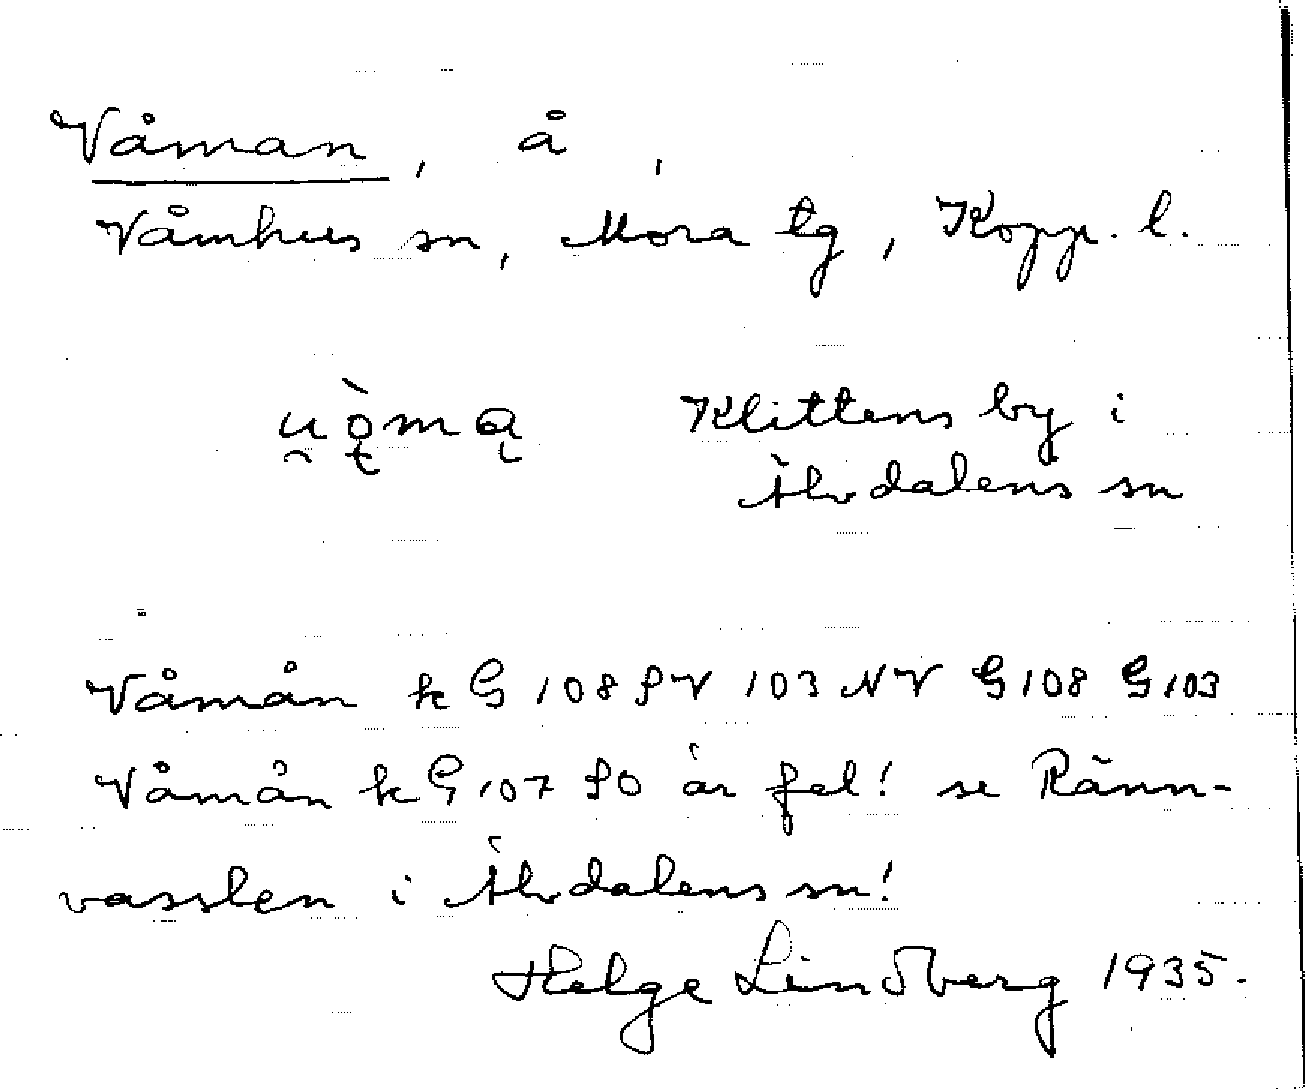 Våman, å,
Våmhus sn, Mora tg, Kopp. l.
u̯ǫ̀mą Klittens by i
Älvdalens sn
Våmån k G 108 SV 103 NV G 108 G 103
Våmån k G 107 SO är fel! se Ränn-
vasslen i Älvdalens sn!
Helge Lindberg 1935.